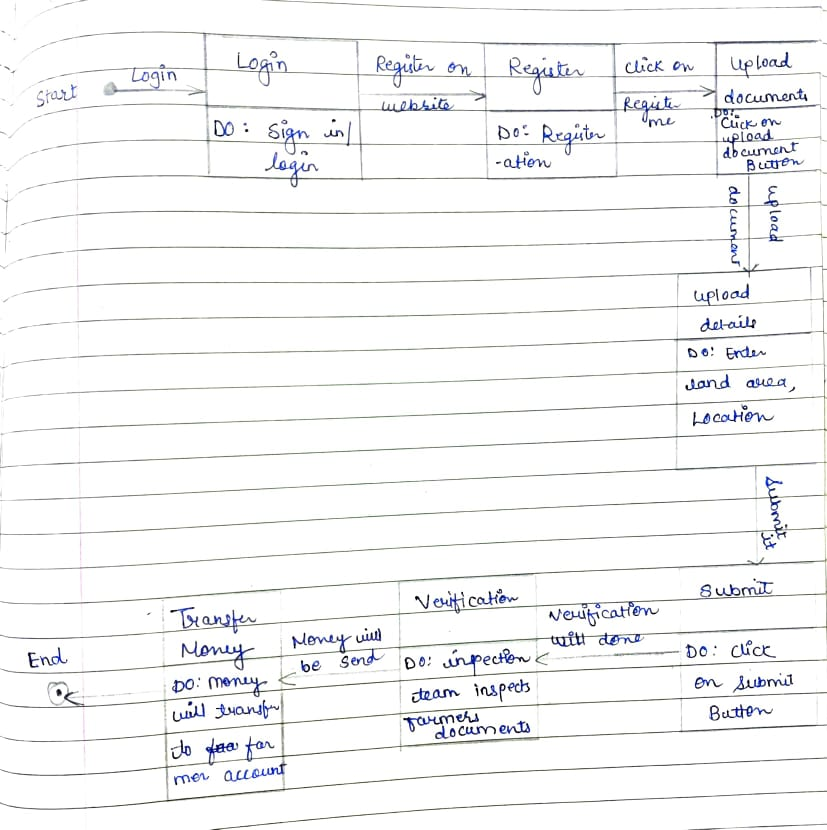 Start
Login
Login
DO: Sign in/
login
Register on
website
Register
Do: Register
-ation
click on
Register
me
Upload
documents
Do:
Click on
upload
document
Button
upload
document
upload
details
Do: Enter
land area,
Location
Submit it
Submit
Do: click
on submit
Button
Verification
will done
Verification
DO: inpection
team inspects
farmers
documents
Money will
be send
Transfer
Money
DO: money
will transfer
to far
mer account
End